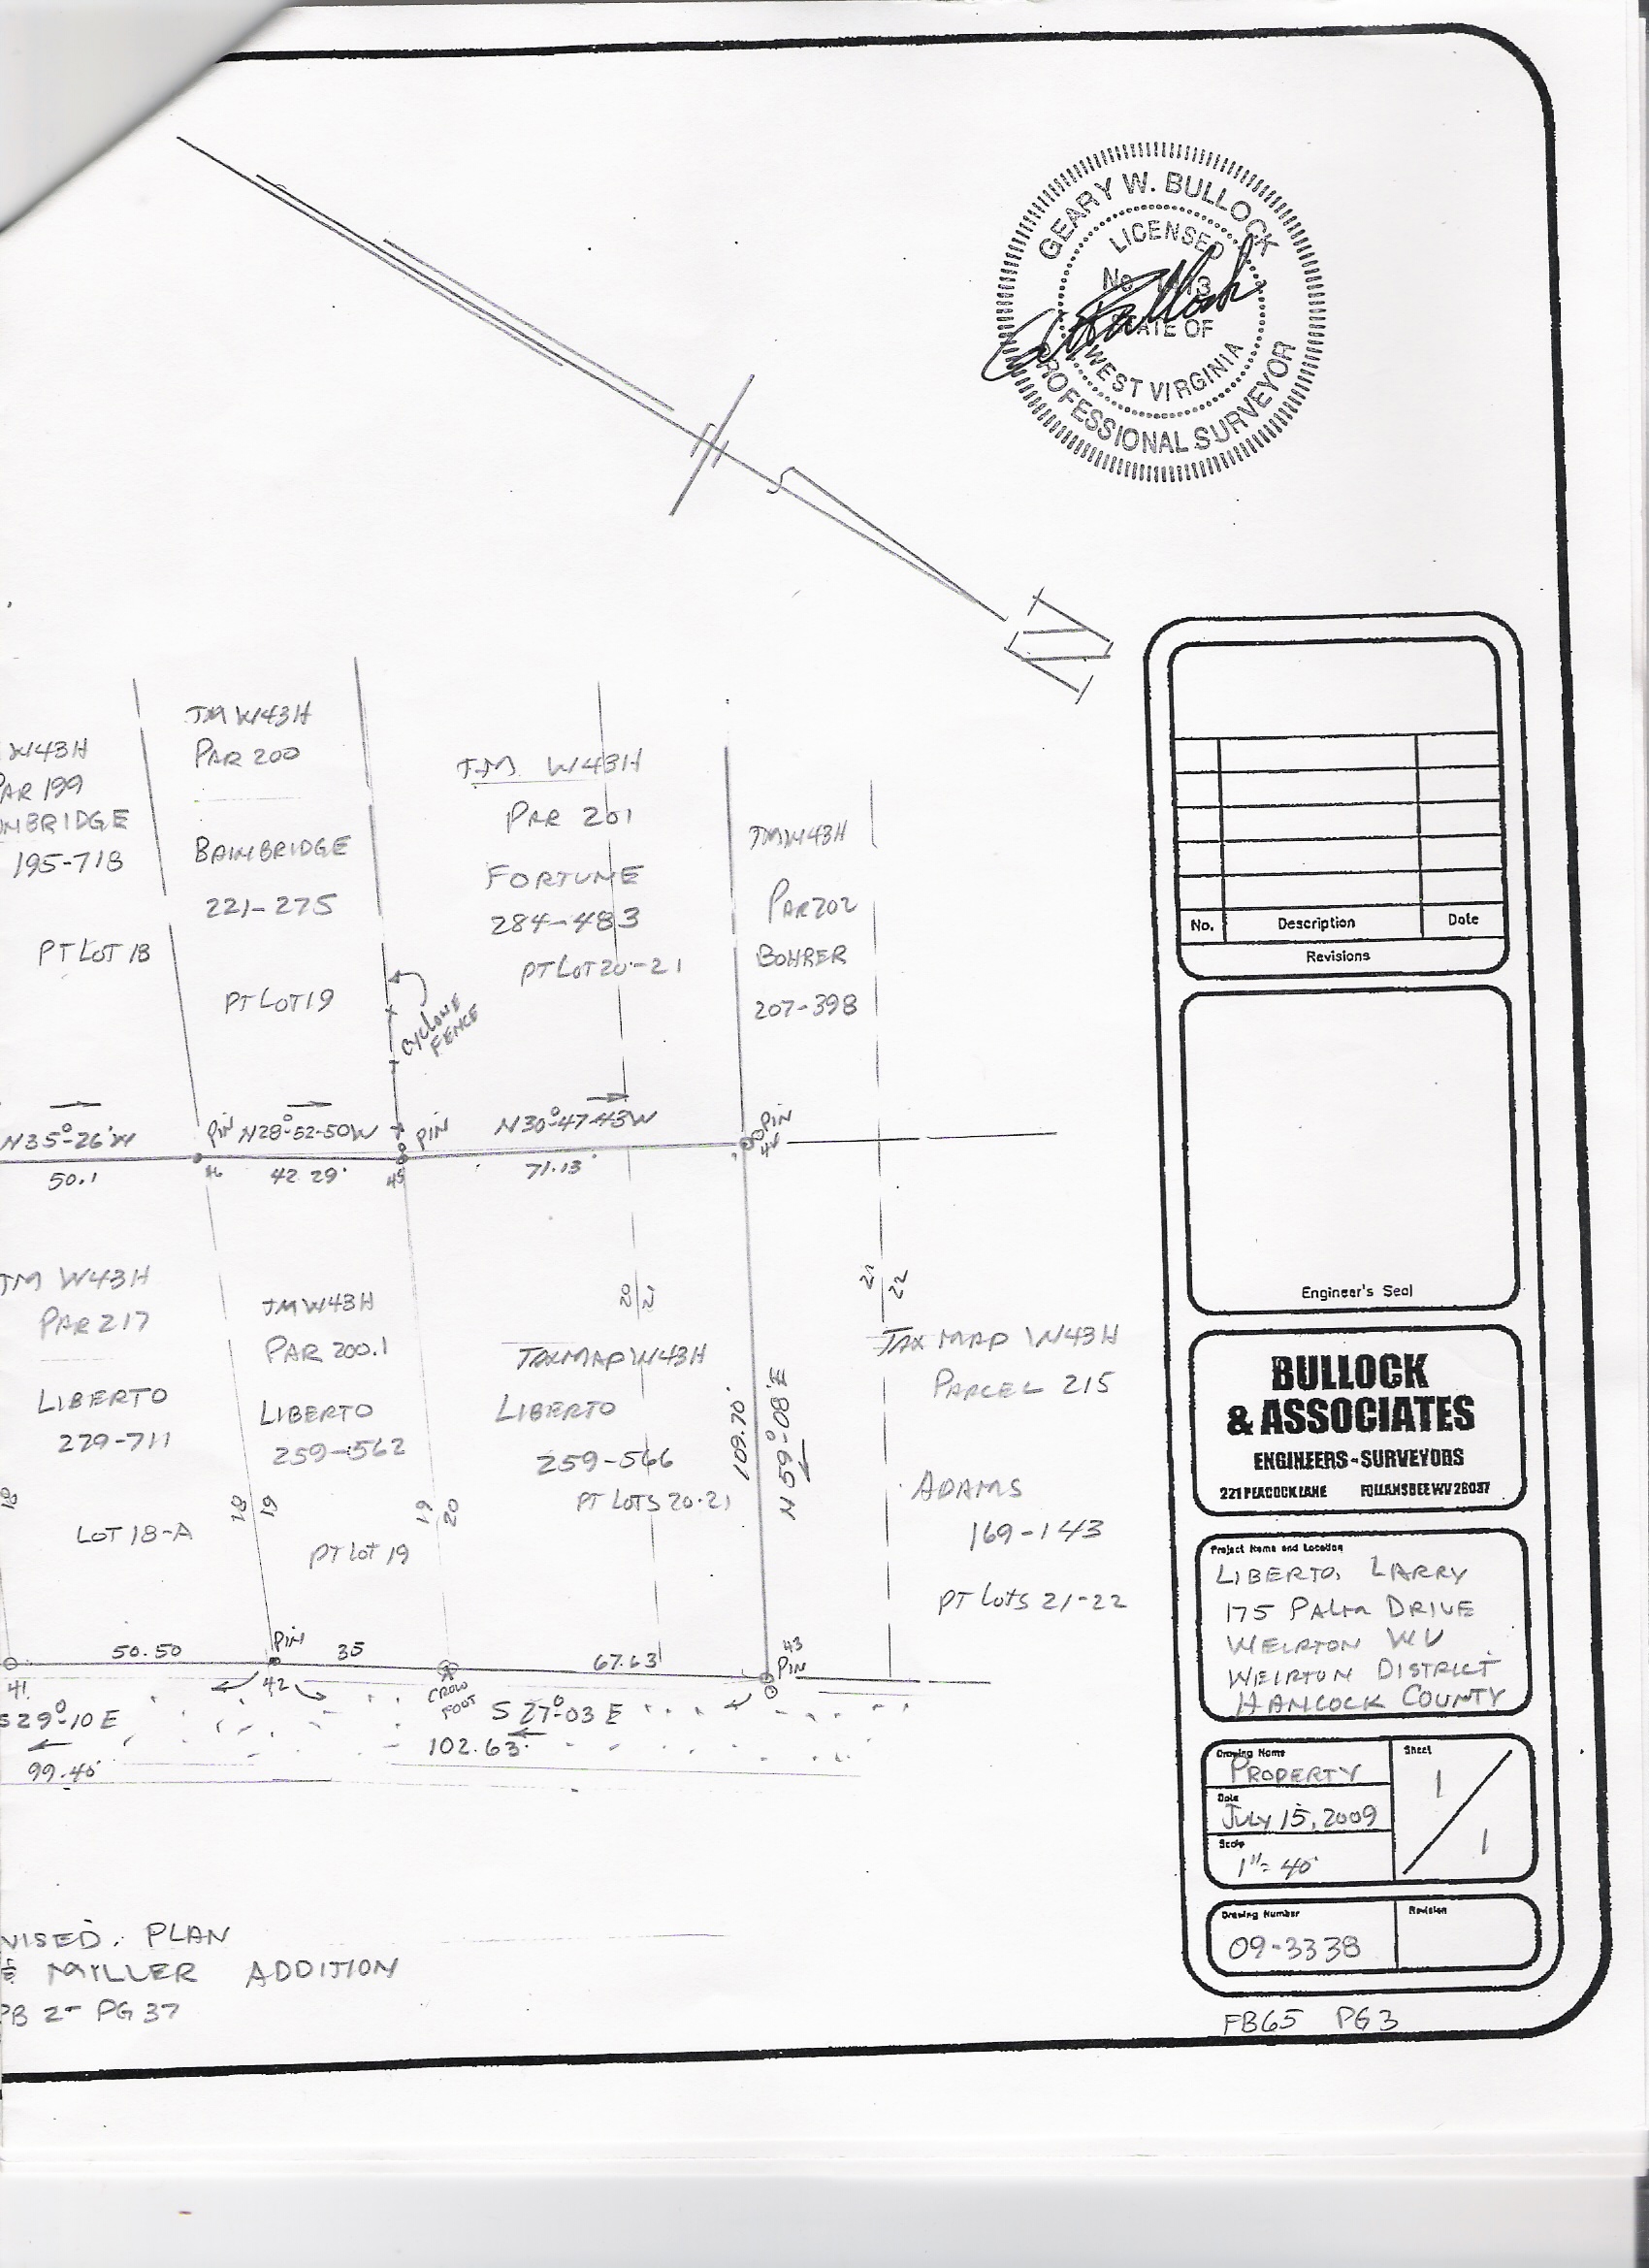 GEARY W. BULLOCK
LICENSED
No.
STATE OF
WEST VIRGINIA
PROFESSIONAL SURVEYOR
N
W43H
PAR 199
195-718
PT LOT 18
TM W43H
PAR 200
BAINBRIDGE
221-275
PT LOT 19
CYCLONE
FENCE
TM W43H
PAR 201
FORTUNE
284-483
PT LOT 20-21
TM W43H
PAR 202
BOHRER
207-398
N35°-26'W
50.1
PIN
46
N28°-52-50W
42.29'
PIN
45
N30°-47-43W
71.13'
PIN
44
TM W43H
PAR 217
LIBERTO
279-711
LOT 18-A
18
18
19
TM W43H
PAR 200.1
LIBERTO
259-562
PT LOT 19
19
20
20
21
TAX MAP W43H
LIBERTO
259-566
PT LOTS 20-21
109.70'
N 59°-08'E
21
22
TAX MAP W43H
PARCEL 215
ADAMS
169-143
PT LOTS 21-22
50.50
PIN
35
67.63
43
PIN
41
42
CROW
FOOT
S29°-10 E
99.40'
S 27°-03 E
102.63'
VISED. PLAN
MILLER ADDITION
PB 2- PG 37
No.
Description
Date
Revisions
Engineer's Seal
BULLOCK
& ASSOCIATES
ENGINEERS-SURVEYORS
221 PEACOCK LANE FOLLANSBEE WV 26037
Project Name and Location
LIBERTO, LARRY
175 PALM DRIVE
WEIRTON WV
WEIRTON DISTRICT
HANCOCK COUNTY
Drawing Name
PROPERTY
Date
JULY 15, 2009
Scale
1"= 40'
Sheet
1
1
Drawing Number
09-3338
Revision
FB65 PG3